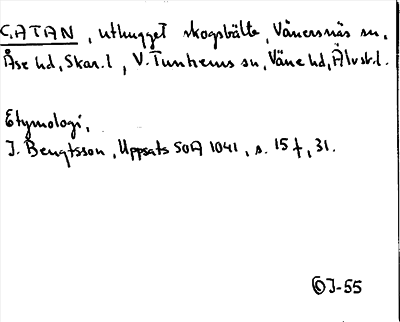 GATAN, uthugget skogsbälte, Vänersnäs sn,
Åse hd, Skar.l, V. Tunhems sn, Väne hd, Älvsb.l.
Etymologi,
J. Bengtsson, Uppsats SOA 1041, s. 15 f, 31.
OJ-55